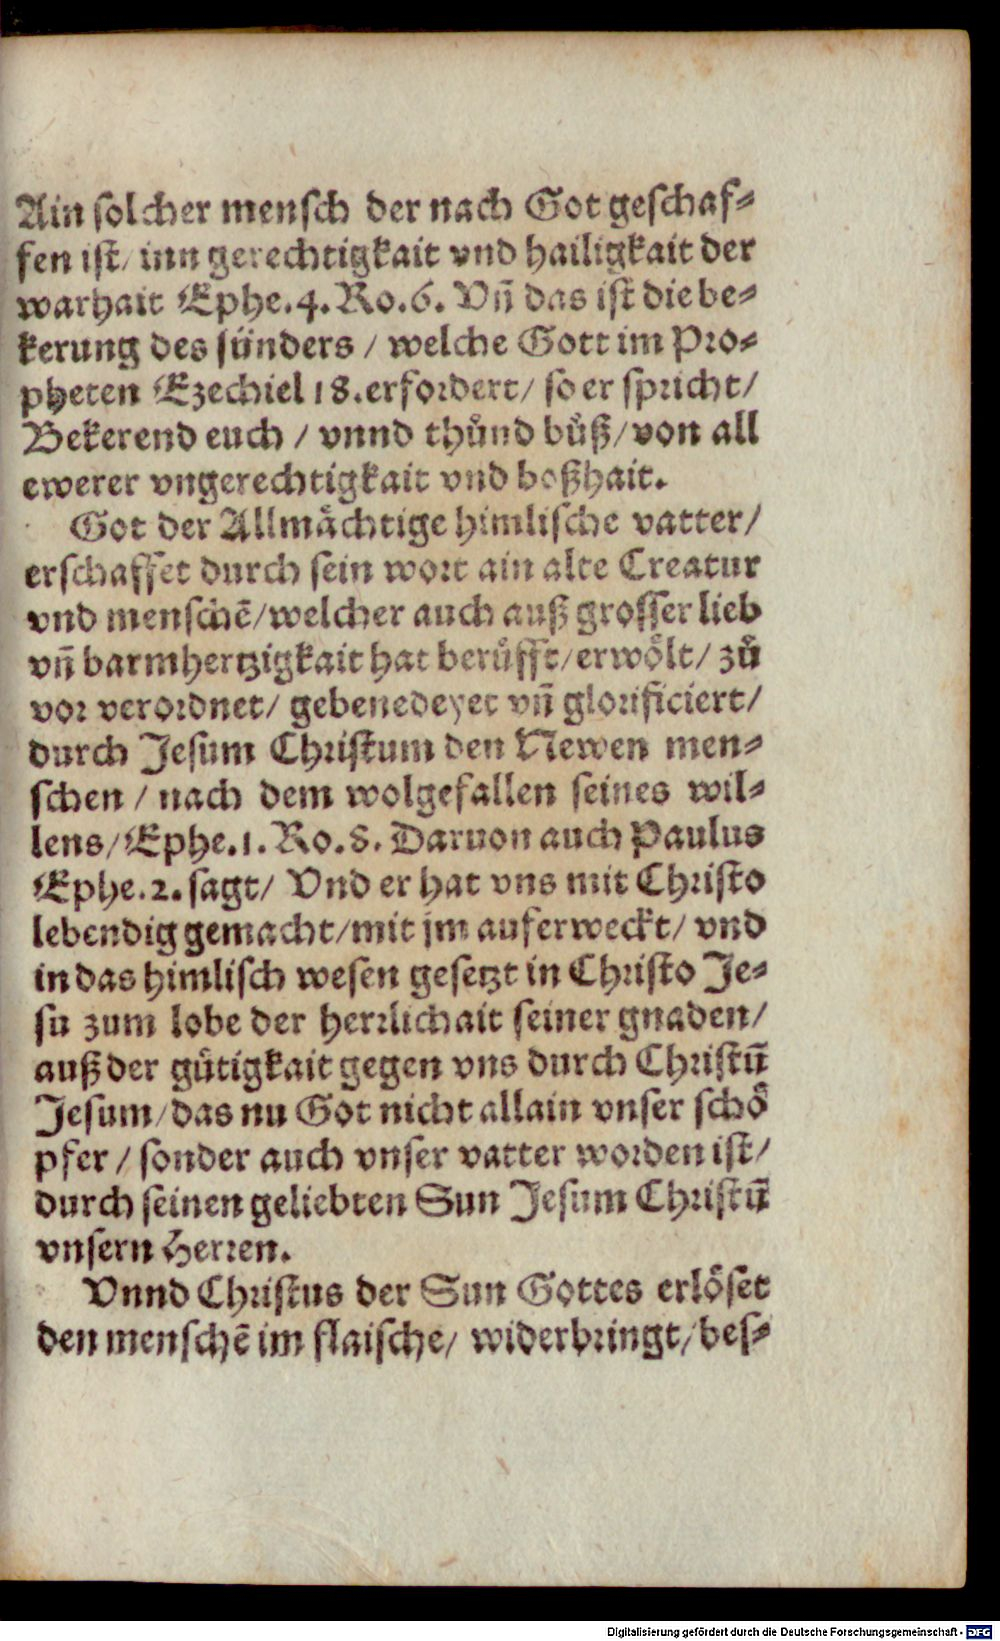 Ain solcher mensch der nach Got geschaf⸗
fen ist/ inn gerechtigkait vnd hailigkait der
warhait Ephe.4. Ro.6. Vñ das ist die be⸗
kerung des sünders / welche Gott im Pro⸗
pheten Ezechiel 18. erfordert/ so er spricht/
Bekerend euch / vnnd thůnd bůß/ von all
ewerer vngerechtigkait vnd boßhait.
Got der Allmächtige himlische vatter/
erschaffet durch sein wort ain alte Creatur
vnd menschē/ welcher auch auß grosser lieb
vñ barmhertzigkait hat berůfft/ erwölt/ zů
vor verordnet/ gebenedeyet vñ glorificiert/
durch Jesum Christum den Newen men⸗
schen / nach dem wolgefallen seines wil⸗
lens/ Ephe.1. Ro.8. Daruon auch Paulus
Ephe.2. sagt/ Vnd er hat vns mit Christo
lebendig gemacht/ mit jm auferweckt/ vnd
in das himlisch wesen gesetzt in Christo Je⸗
su zum lobe der herrlichait seiner gnaden/
auß der gütigkait gegen vns durch Christū
Jesum/ das nu Got nicht allain vnser schö
pfer / sonder auch vnser vatter worden ist/
durch seinen geliebten Sun Jesum Christū
vnsern Herren.
Vnnd Christus der Sun Gottes erlöset
den menschē im flaische/ widerbringt/ bes⸗
Digitalisierung gefördert durch die Deutsche Forschungsgemeinschaft - DFG